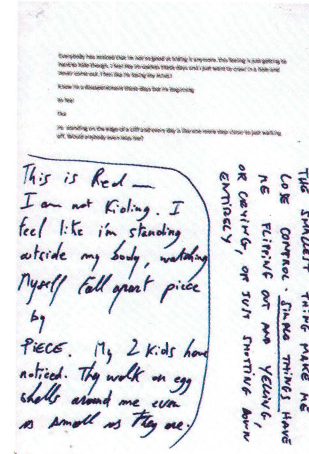 Everybody has noticed that I'm not so good at hiding it anymore. this feeling is just getting to
hard to hide though. I feel like I'm useless these days and I just want to crawl in a hole and
never come out. I feel like I'm losing my mind!
I know I'm a disappointment these days but I'm beginning
to feel
I'm standing on the edge of a cliff and every day is like one more step closer to just walking
off. Would anybody even miss me?
This is Real
I am not Kidding. I
feel like i'm standing
outside my body, watching
Myself fall apart piece
by
PIECE. My 2 Kids have
noticed. They walk on egg
shells around me even
as small as they are.
THE SMALLEST THING MAKE ME
LOSE CONTROL. SMALL THINGS HAVE
ME FLIPPING OUT AND YELLING,
OR CRYING, OR JUST SHUTTING DOWN
ENTIRELY